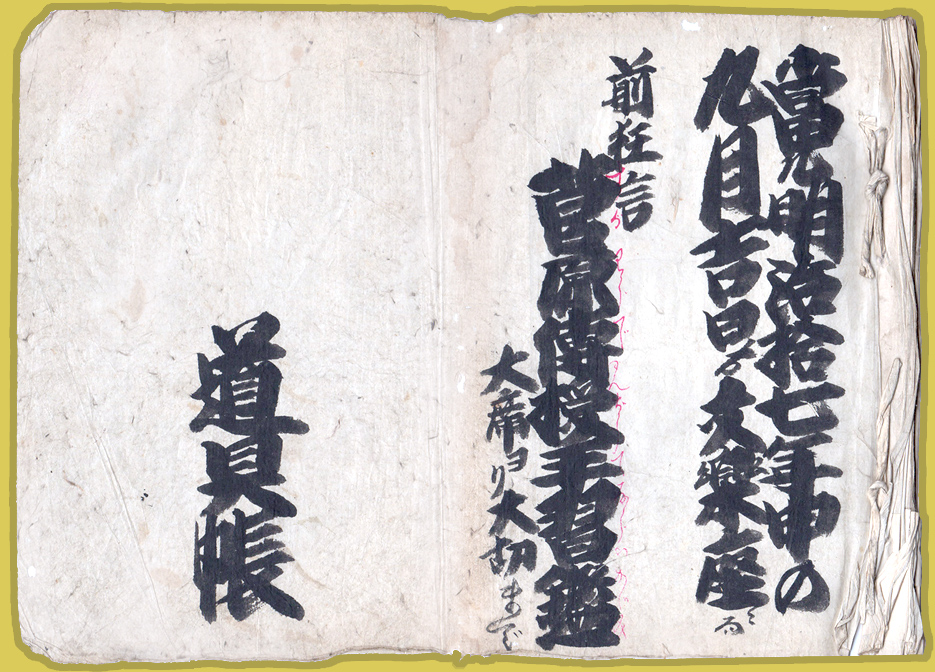 當ル明治拾七年申の
九月吉日ゟ樂座ニ而
前狂言
菅原傳授手習鑑
大席ヨリ大切まで
道具帳